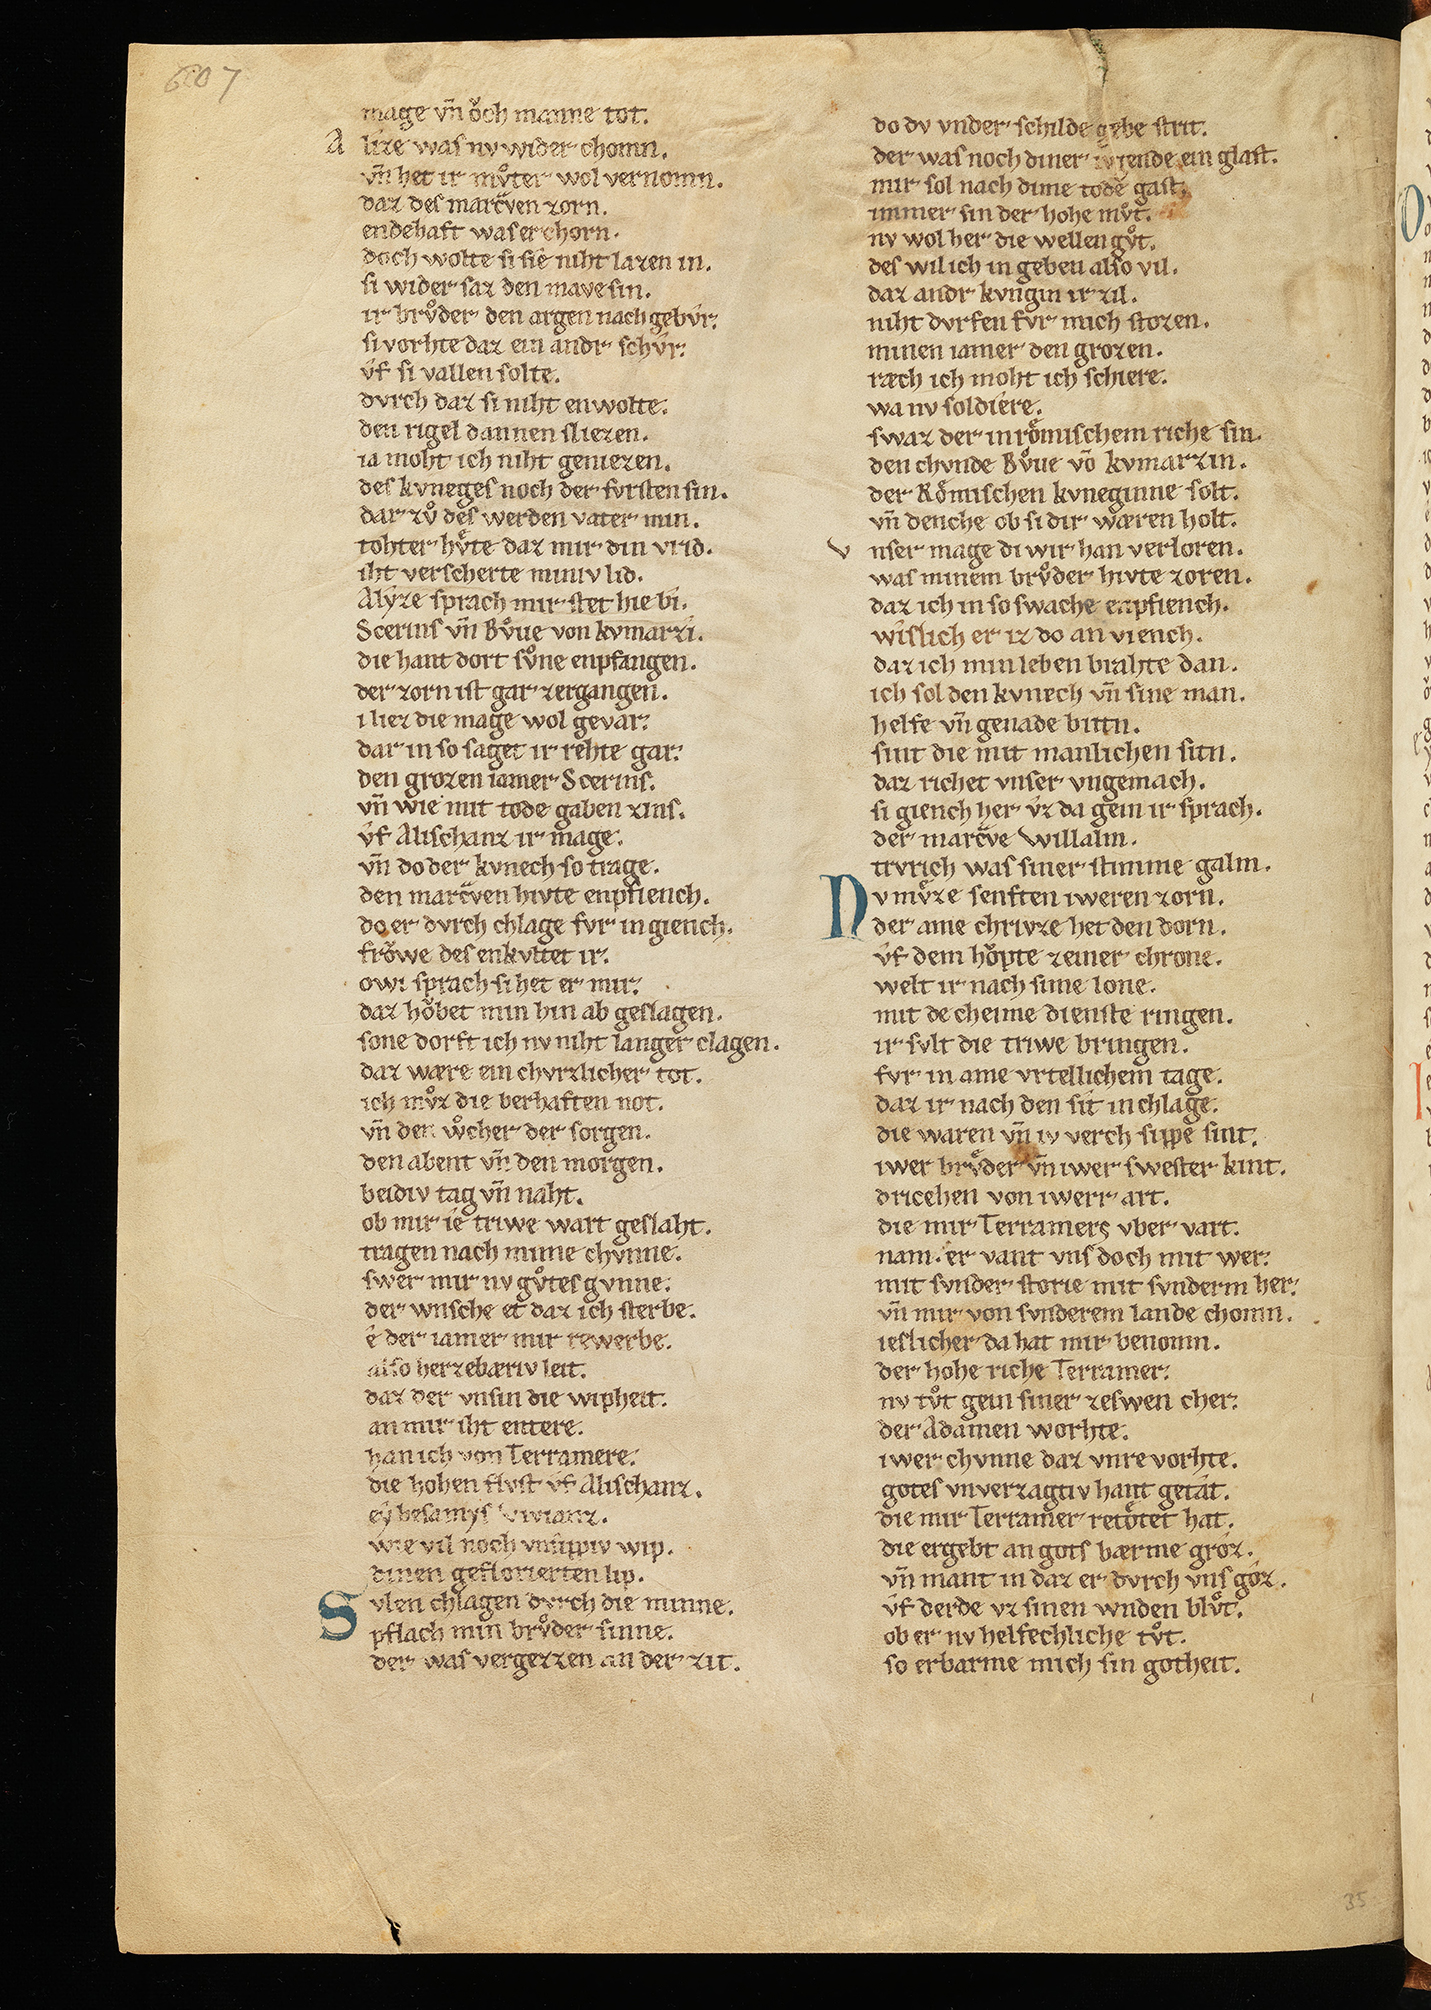 607
mage vn̄ oͮch manne tot.
A lize was nv wider chomn.
vn̄ het ir mvͦter wol vernomn.
daz des marcͣven zorn.
endehaft was er chorn.
doch wolte si sie niht lazen in.
si wider saz den mave sin.
ir brvͦder den argen nachgebv́r.
si vorhte daz ein andr schv́r.
v́f si vallen solte.
dvrch daz si niht enwolte.
den rigel dannen sliezen.
ia moht ich niht geniezen.
des kvneges noch der fvrsten sin.
dar zvͦ des werden vater min.
tohter hvͤte daz mir din vrid.
iht verscherte miniv lid.
Alyze sprach mir stet hie bi.
Scerins vn̄ Bvͦue von kvmarzi.
die hant dort svͦne enpfangen.
der zorn ist gar zergangen.
i liez die mage wol gevar.
dar in so saget ir rehte gar.
den grozen iamer Scerins.
vn̄ wie mit tode gaben zins.
v́f Alischanz ir mage.
vn̄ do der kvnech so trage.
den marcͣven hivte enpfiench.
do er dvrch chlage fvr in giench.
froͮwe des enkvltet ir.
owi sprach si het er mir.
daz hoͮbet min hin ab geslagen.
sone dorft ich nv niht langer clagen.
daz wære ein chvrzlicher tot.
ich mvͦz die berhaften not.
vn̄ den wͦcher der sorgen.
den abent vn̄ den morgen.
beidiv tag vn̄ naht.
ob mir ie triwe wart geslaht.
tragen nach mime chvnne.
swer mir nv gvͦtes gvnne.
der wnsche et daz ich sterbe.
e der iamer mir rewerbe.
also herzebæriv leit.
daz der vnsin die wipheit.
an mir iht entere.
han ich von Terramere.
die hohen flvst v́f Alischanz.
ey besamys Vivianz.
wie vil noch vnsippiv wip.
dinen geflorierten lip.
Svlen chlagen dvrch die minne.
pflach min brvͦder sinne.
der was vergezzen an der zit.
do dv vnder schilde gebe strit.
der was noch diner ivgende ein glast.
mir sol nach dime tode gast.
immer sin der hohe mvͦt.
nv wol her die wellen gvͦt.
des wil ich in geben also vil.
daz andr kvngin ir zil.
niht dvrfen fvr mich stozen.
minen iamer den grozen.
ræch ich moht ich schiere.
wa nv soldiere.
swaz der in roͤmischem riche sin.
den chvnde Bvͦue vō kvmarzin.
der Roͤmischen kvneginne solt.
vn̄ denche ob si dir wæren holt.
v nser mage di wir han verloren.
was minem brvͦder hivte zoren.
daz ich in so swache enpfiench.
wislich er iz do an viench.
daz ich min leben brahte dan.
ich sol den kvnech vn̄ sine man.
helfe vn̄ genade bittn.
sint die mit manlichen sitn.
daz richet vnser vngemach.
si giench her v́z da gein ir sprach.
der marcͣve Willalm.
trvrich was siner stimme galm.
Nv mvͤze senften iweren zorn.
der ame chrivze het den dorn.
v́f dem hoͮpte zeiner chrone.
welt ir nach sime lone.
mit de cheime dienste ringen.
ir svlt die triwe bringen.
fvr in ame vrteillichem tage.
daz ir nach den sit in chlage.
die waren vn̄ iv verch sippe sint.
iwer brvͤder vn̄ iwer swester kint.
dricehen von iwerr art.
die mir Terramers vber vart.
nam. er vant vns doch mit wer.
mit svnder storie mit svnderm her.
vn̄ mir von svnderem lande chomn.
ieslicher da hat mir benomn.
der hohe riche Terramer.
nv tvͦt gein siner zeswen cher.
der Adamen worhte.
iwer chvnne daz vnrevorhte.
gotes vnverzagtiv hant getat.
die mir Terramer retoͤtet hat.
die ergebt an gots bærme groz.
vn̄ mant in daz er dvrch vns goz.
v́f derde vz sinen wnden blvͦt.
ob er nv helfechliche tvͦt.
so erbarme mich sin gotheit.
35